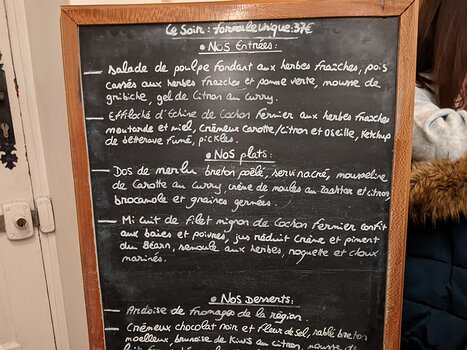 Ce Soir : formule unique : 37€
• Nos Entrées :
— Salade de poulpe fondant aux herbes fraîches, pois
cassés aux herbes fraîches et pomme verte, mousse de
gribiche, gel de citron au curry.
— Effiloché d'échine de cochon fermier aux herbes fraîches
moutarde et miel, crémeux carotte/citron et oseille, ketchup
de betterave fumé, pickles.
• Nos plats :
— Dos de merlu breton poêlé, servi nacré, mousseline
de carotte au curry, crème de moules au zaahtar et citron
broconole et graines germées.
— Mi cuit de filet mignon de cochon fermier confit
aux baies et poivres, jus réduit crème et piment
du Béarn, semoule aux herbes, roquette et choux
marinés.
• Nos Desserts :
— Ardoise de fromages de la région.
— Crémeux chocolat noir et fleur de sel, sablé breton
moelleux, brunoise de kiwis au citron, mousse de